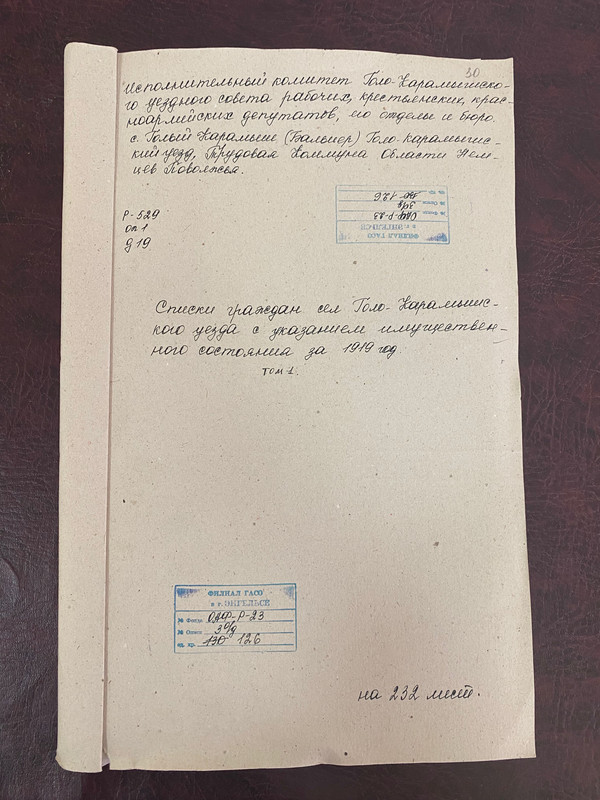 30
Исполнительный комитет Голо-Карамышско-
го уездного совета рабочих, крестьянских, крас-
ноармийских депутатов, его отделы и бюро.
с. Голый Карамыш (Бальцер) Голо-Карамышс-
кий уезд, Трудовая Коммуна Области Нем-
цев Поволжья.
ФИЛИАЛ ГАСО
в г. ЭНГЕЛЬСЕ
№ Фонда ОДФ-Р-23
№ Описи 3д/д
ед. хр. 130 126
Р-529
оп 1
д 19
Списки граждан сел Голо-Карамышс-
кого уезда с указанием имуществен-
ного состояния за 1919 год.
том 1.
ФИЛИАЛ ГАСО
в г. ЭНГЕЛЬСЕ
№ Фонда ОДФ-Р-23
№ Описи 3д/д
ед. хр. 130 126
на 232 лист.